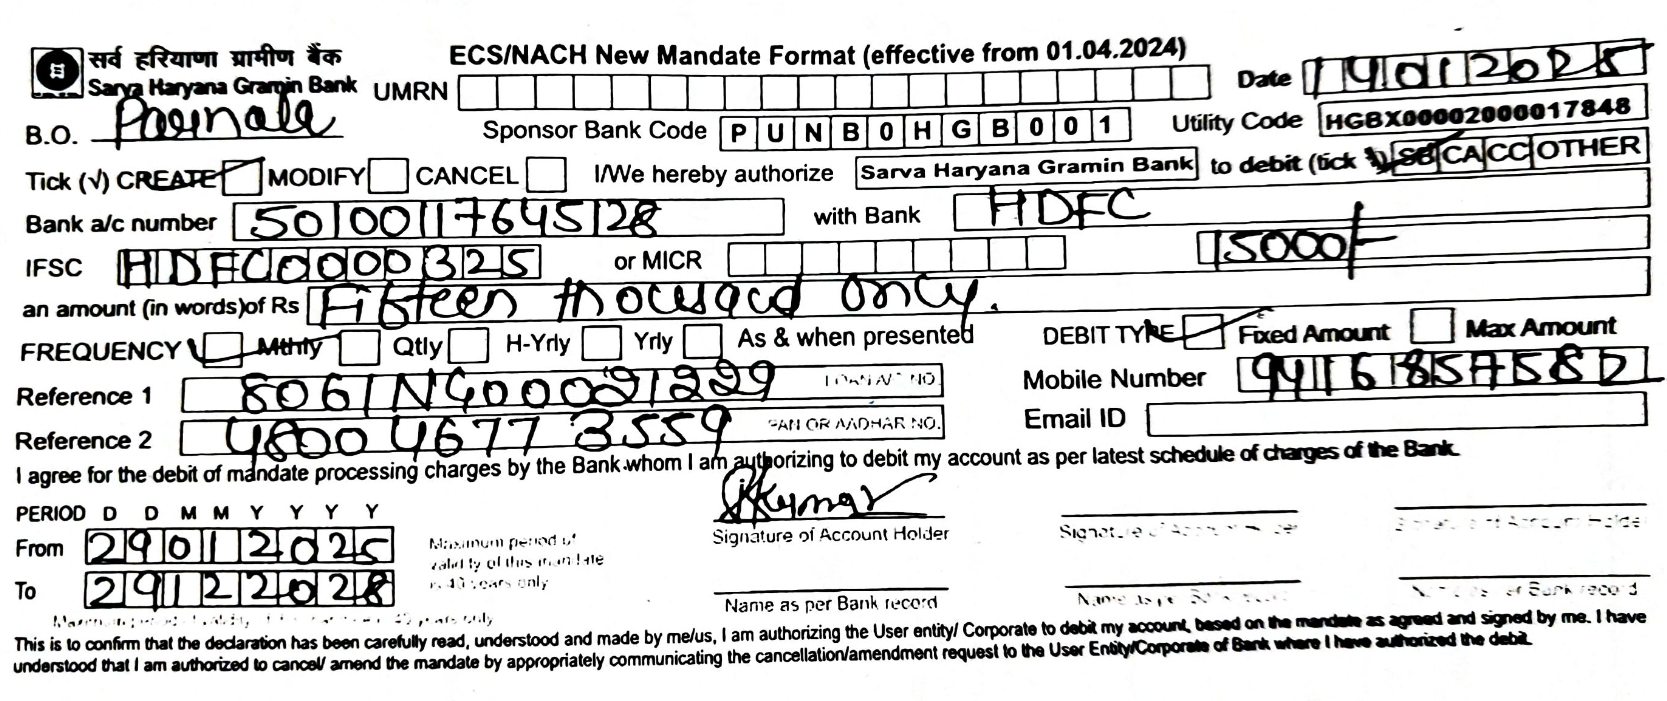 सर्व हरियाणा ग्रामीण बैंक
Sarva Haryana Gramin Bank
ECS/NACH New Mandate Format (effective from 01.04.2024)
UMRN
Date 14012025
B.O.
Sponsor Bank Code PUNB0HGB001
Utility Code HGBX00002000017848
Tick (√) CREATE MODIFY CANCEL I/We hereby authorize Sarva Haryana Gramin Bank to debit (tick √) SB CA CC OTHER
Bank a/c number 50100117645128 with Bank HDFC
IFSC HDFC0000325 or MICR 15000/-
an amount (in words)of Rs Fifteen thousand only.
FREQUENCY Mthly Qtly H-Yrly Yrly As & when presented DEBIT TYPE Fixed Amount Max Amount
Reference 1 LOAN A/C NO. Mobile Number
Reference 2 4800 4677 3559 PAN OR AADHAR NO. Email ID
I agree for the debit of mandate processing charges by the Bank whom I am authorizing to debit my account as per latest schedule of charges of the Bank.
PERIOD D D M M Y Y Y Y
From 29012025
To 29122028
Maximum period of
validity of this mandate
is 40 years only
Signature of Account Holder Signature of Account Holder Signature of Account Holder
Name as per Bank record Name as per Bank record Name as per Bank record
This is to confirm that the declaration has been carefully read, understood and made by me/us, I am authorizing the User entity/ Corporate to debit my account, based on the mandate as agreed and signed by me. I have
understood that I am authorized to cancel/ amend the mandate by appropriately communicating the cancellation/amendment request to the User Entity/Corporate of Bank where I have authorized the debit.